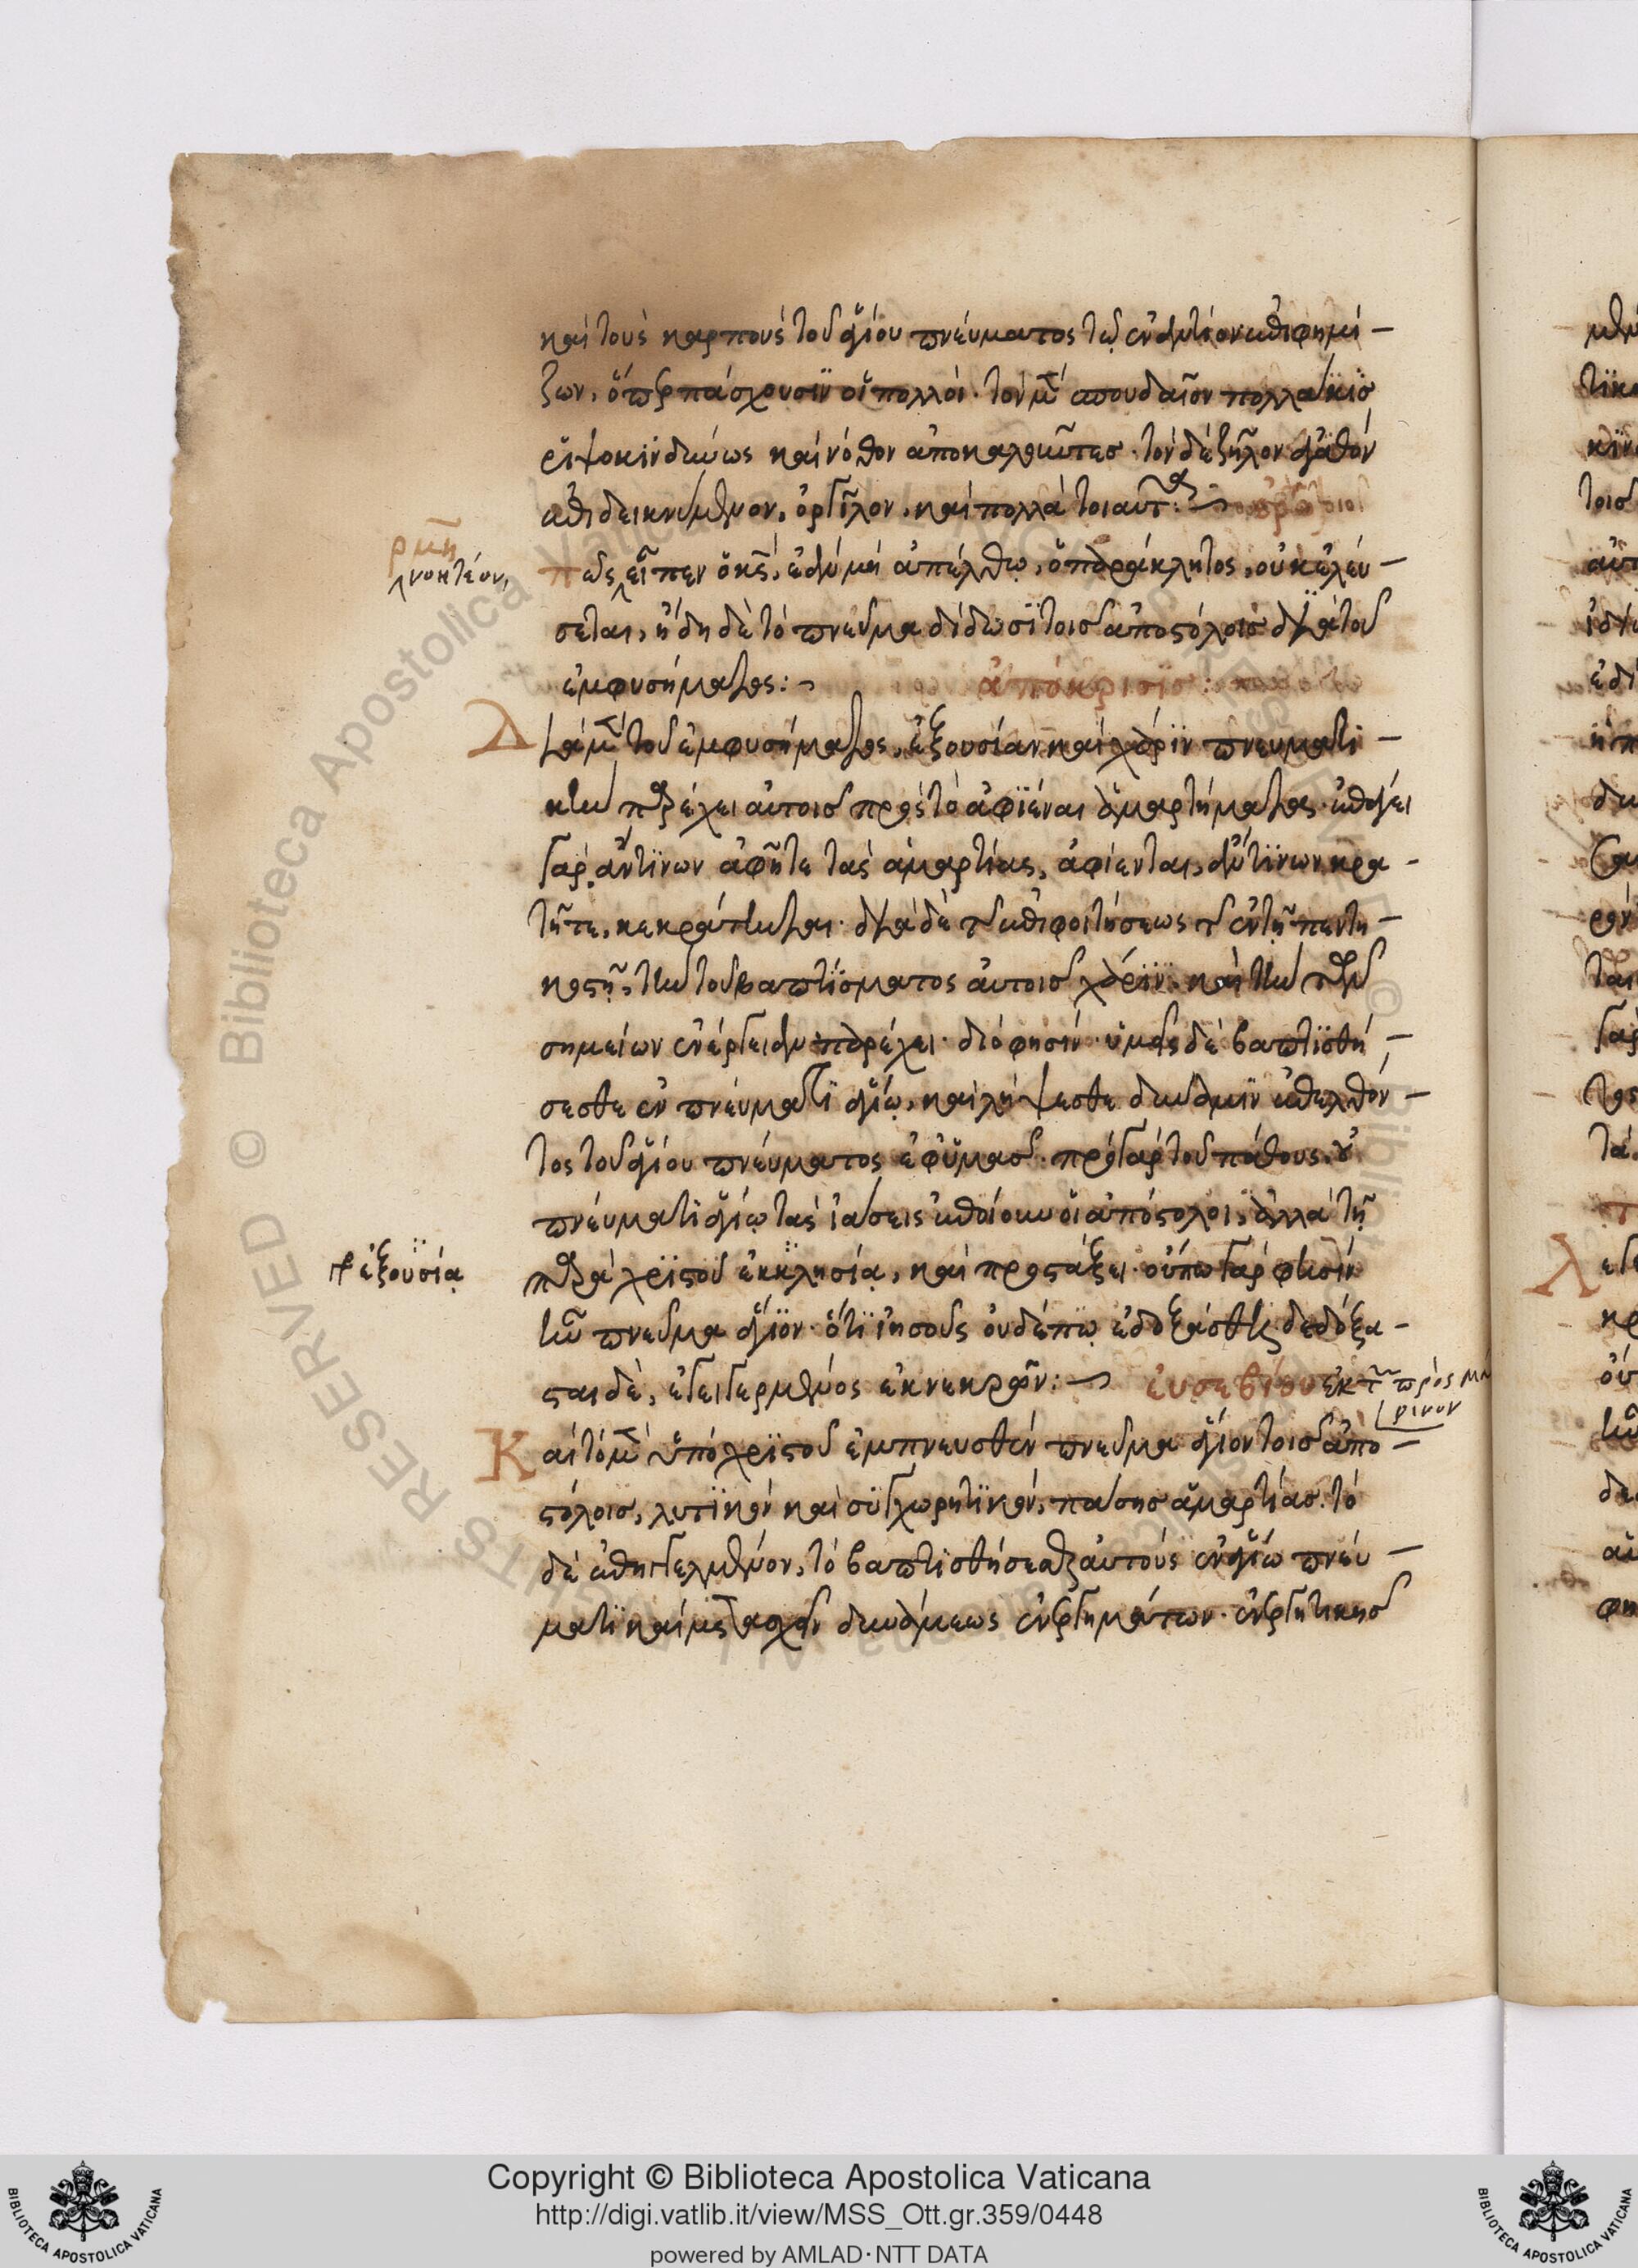 καὶ τοὺς καρποὺς τοῦ ἁγίου πνεύματος τῷ ἐναντίον ἐπιφημί-
ζων. ὅπερ πάσχουσιν οἱ πολλοί. τὸν μὲν σπουδαῖον πολλάκις
ῥιψοκίνδυνον καὶ νόθον ἀποκαλοῦντες. τὸν δὲ ζῆλον ἀγαθὸν
ἐπιδεικνύμενον, ὀργίλον. καὶ πολλὰ τοιαῦτα:
ρμη
πῶς εἶπεν ὁ κς, ἐὰν μὴ ἀπέλθω, ὁ παράκλητος, οὐκ ἐλεύ-
σεται, ἤδη δὲ τὸ πνεῦμα δίδωσι τοῖς ἀποστόλοις διὰ τοῦ
ἐμφυσήματος: ἀπόκρισις:
Διὰ μὲν τοῦ ἐμφυσήματος, ἐξουσίαν καὶ χάριν πνευματι-
κὴν παρέχει αὐτοῖς πρὸς τὸ ἀφιέναι ἁμαρτήματα. ἐπάγει
γάρ, ἄν τινων ἀφῆτε τὰς ἁμαρτίας, ἀφίενται, ἄν τινων κρα-
τῆτε, κεκράτηνται. διὰ δὲ τῆς ἐπιφοιτήσεως τῆς ἐν τῇ πεντη-
κοστῇ, τὴν τοῦ βαπτίσματος αὐτοῖς χάριν. καὶ τὴν τῶν
σημείων ἐνέργειαν παρέχει. διό φησιν. ὑμεῖς δὲ βαπτισθή-
σεσθε ἐν πνεύματι ἁγίῳ, καὶ λήψεσθε δύναμιν ἐπελθόν-
τος τοῦ ἁγίου πνεύματος ἐφ' ὑμᾶς. πρὸ γὰρ τοῦ πάθους, οὐ
πνεύματι ἁγίῳ τὰς ἰάσεις ἐποίουν οἱ ἀπόστολοι, ἀλλὰ τῇ
ἐξουσίᾳ
παρὰ χριστοῦ ἐκκλησίᾳ, καὶ προστάξει. οὔπω γάρ φησιν
ἦν πνεῦμα ἅγιον. ὅτι ἰησοῦς οὐδέπω ἐδοξάσθη, δεδόξα-
σται δὲ, ἐγειγερμένος ἐκ νεκρῶν: εὐσεβίου ἐκ τ πρὸς μα
ρινον
Καὶ τὸ μὲν ὑπὸ χριστοῦ ἐμπνευσθὲν πνεῦμα ἅγιον τοῖς ἀπο-
στόλοις, λυτικὸν καὶ συγχωρητικὸν, πάσης ἁμαρτίας. τὸ
δὲ ἐπηγγελμένον, τὸ βαπτισθήσεσθαι αὐτοὺς ἐν ἁγίῳ πνεύ-
ματι καὶ μετασχεῖν δυνάμεως ἐνεργημάτων. ἐνεργητικῆς
Copyright © Biblioteca Apostolica Vaticana
http://digi.vatlib.it/view/MSS_Ott.gr.359/0448
powered by AMLAD·NTT DATA
BIBLIOTECA APOSTOLICA VATICANA
BIBLIOTECA APOSTOLICA VATICANA